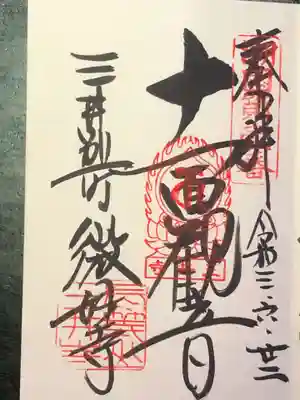 奉拝 令和三・六・廿二
十一面観音
三井別所 微妙寺